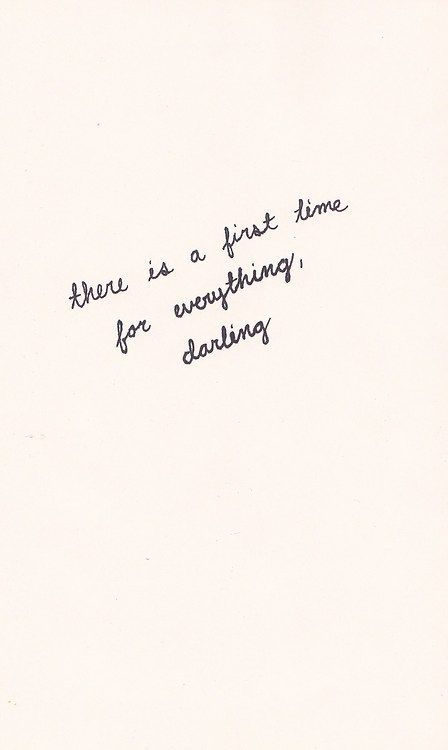 there is a first time
for everything,
darling